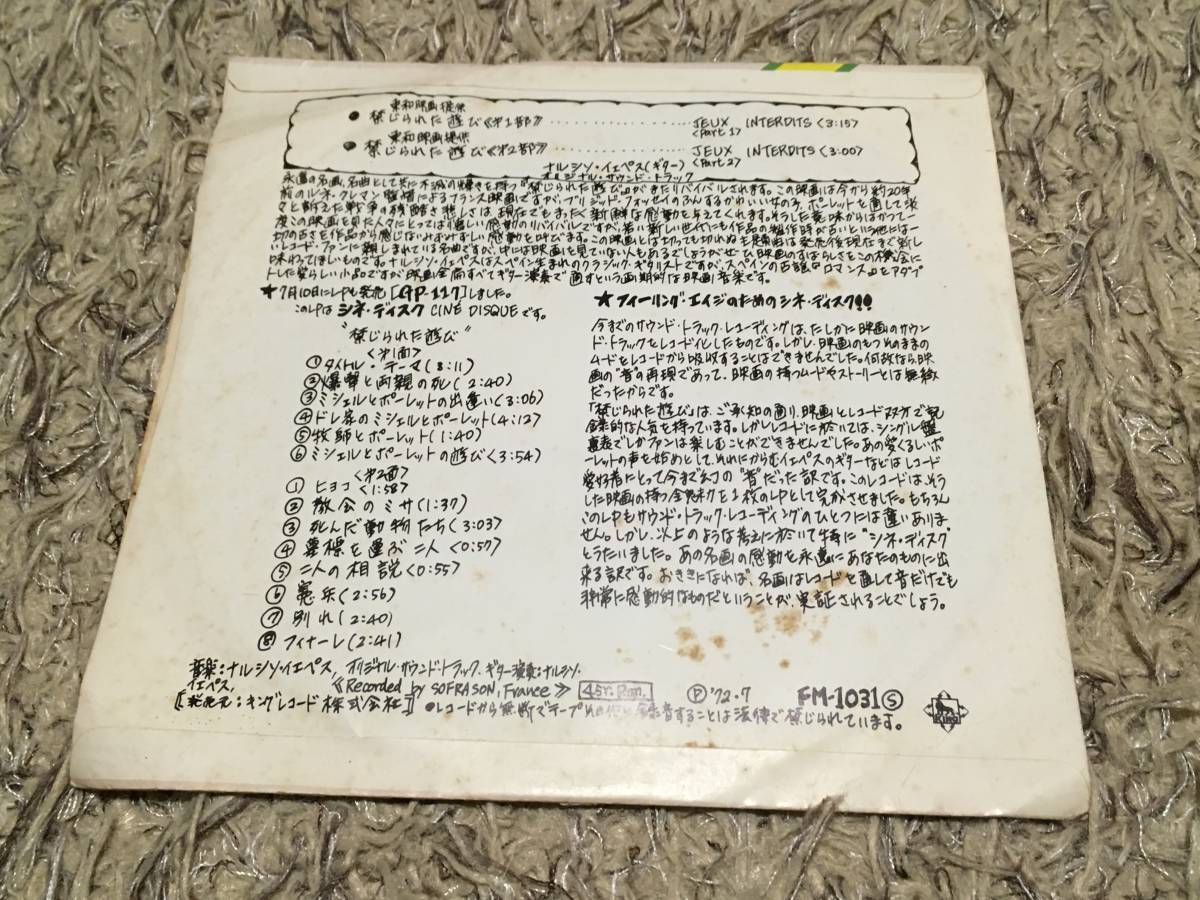 東和映画提供
● 禁じられた遊び《第1部》 ･･････････････ JEUX INTERDITS (3:15)
(Part 1)
東和映画提供
● 禁じられた遊び《第2部》 ･･････････････ JEUX INTERDITS (3:00)
(Part 2)
ナルシソ・イエペス(ギター)
オリジナル・サウンド・トラック
永遠の名画、名曲として共に不滅の輝きを持つ“禁じられた遊び”がまたリバイバルされます。この映画は今から約20年
前のルネ・クレマン監督によるフランス映画ですが、ブリジッド・フォッセイのふんするかわいい女の子、ポーレットを通して淡
々と訴えた戦争の残酷さ悲しさは現在でもまったく新鮮な感動を与えてくれます。そうした意味からはかつて一
度この映画を見た人々にとっては嬉しい感動のリバイバルですが、若い新しい世代にも作品の製作時が古いという他には一
切の古さを作品から感じないみずみずしい感動を呼びます。この映画とは切っても切れぬ主題曲は発売後現在まで新し
いレコード・ファンに親しまれている名曲ですが、中には映画を見ていない人もあるでしょうがぜひ映画のすばらしさをこの機会に
味わってほしいものです。ナルシソ・イエペスはスペイン生まれのクラシック・ギタリストですが、スペインの古謡『ロマンス』をアダプ
トした愛らしい小品ですが映画全篇すべてギター演奏で通すという画期的な映画音楽です。
★7月10日にLPも発売[GP-117]しました。
このLPは シネ・ディスク CINE DISQUE です。
“禁じられた遊び”
<第1面>
①タイトル・テーマ(3:11)
②爆撃と両親の死(2:40)
③ミシェルとポーレットの出逢い(3:06)
④ドレ家のミシェルとポーレット(4:12)
⑤牧師とポーレット(1:40)
⑥ミシェルとポーレットの遊び(3:54)
<第2面>
① ヒヨコ<1:58>
② 教会のミサ(1:37)
③ 死んだ動物たち(3:03)
④ 墓標を運ぶ二人<0:57>
⑤ 二人の相談<0:55>
⑥ 憲兵(2:56)
⑦ 別れ(2:40)
⑧ フィナーレ(2:41)
★フィーリング・エイジのためのシネ・ディスク!!
今までのサウンド・トラック・レコーディングは、たしかに映画のサウン
ド・トラックをレコード化したものです。しかし、映画のもつそのままの
ムードをレコードから吸収することはできませんでした。何故なら、映
画の“音”の再現であって、映画の持つムードやストーリーとは無縁
だったからです。
「禁じられた遊び」は、ご承知の通り、映画とレコード双方で記
録的な人気を持っています。しかしレコードに於いては、シングル盤
裏表でしかファンは楽しむことができませんでした。あの愛くるしいポ
ーレットの声を始めとして、それにからむイエペスのギターなどはレコード
愛好者にとって今まで幻の“音”だった訳です。このレコードは、そう
した映画の持つ全魅力を1枚のLPとして完成させました。もちろん
このLPもサウンド・トラック・レコーディングのひとつには違いありま
せん。しかし、以上のような考えに於いて特に“シネ・ディスク”
とうたいました。あの名画の感動を永遠にあなたのものに出
来る訳です。おききになれば、名画はレコードを通して音だけでも
非常に感動的なものだということが、実証されることでしょう。
音楽:ナルシソ・イエペス、オリジナル・サウンド・トラック、ギター演奏:ナルシソ・
イエペス,
《Recorded by SOFRASON, France》 45r.p.m. Ⓟ'72・7 FM-1031 Ⓢ
[発売元:キングレコード株式会社] ●レコードから無断でテープその他に録音することは法律で禁じられています。
KING